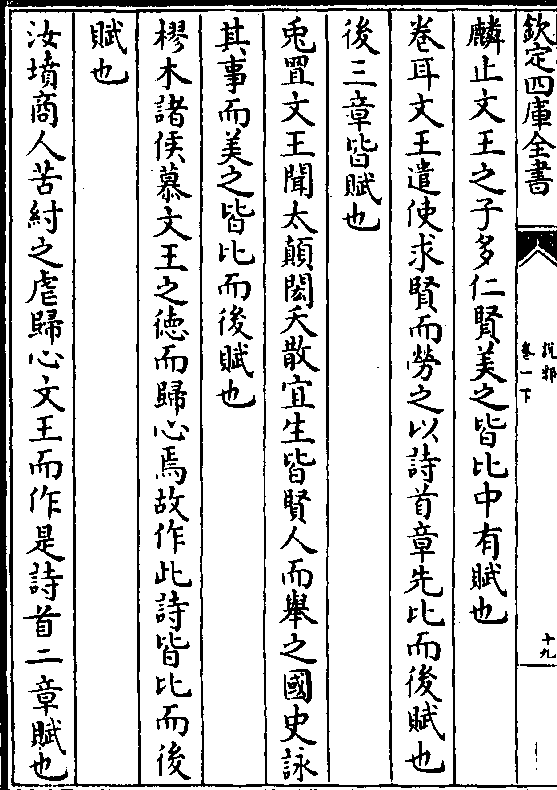 欽定四庫全書
說郛
卷一下
十九
麟止文王之子多仁賢美之皆比中有賦也
卷耳文王遣使求賢而勞之以詩首章先比而後賦也
後三章皆賦也
兎罝文王聞太顛閎夭散宜生皆賢人而舉之國史詠
其事而美之皆比而後賦也
樛木諸侯慕文王之徳而歸心焉故作此詩皆比而後
賦也
汝墳商人苦紂之虐歸心文王而作是詩首二章賦也